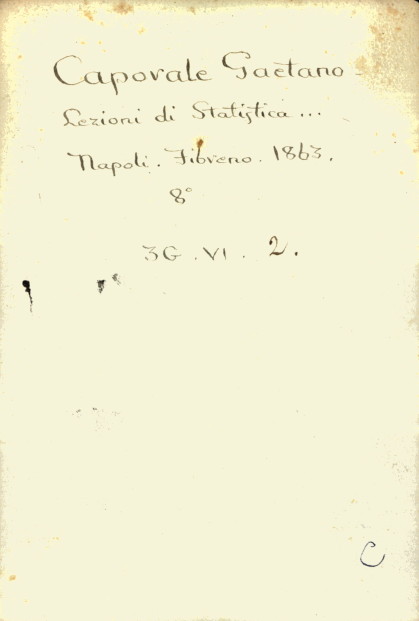 Caporale Gaetano
Lezioni di Statistica ...
Napoli. Fibreno. 1863.
8°
3G. VI. 2.
C